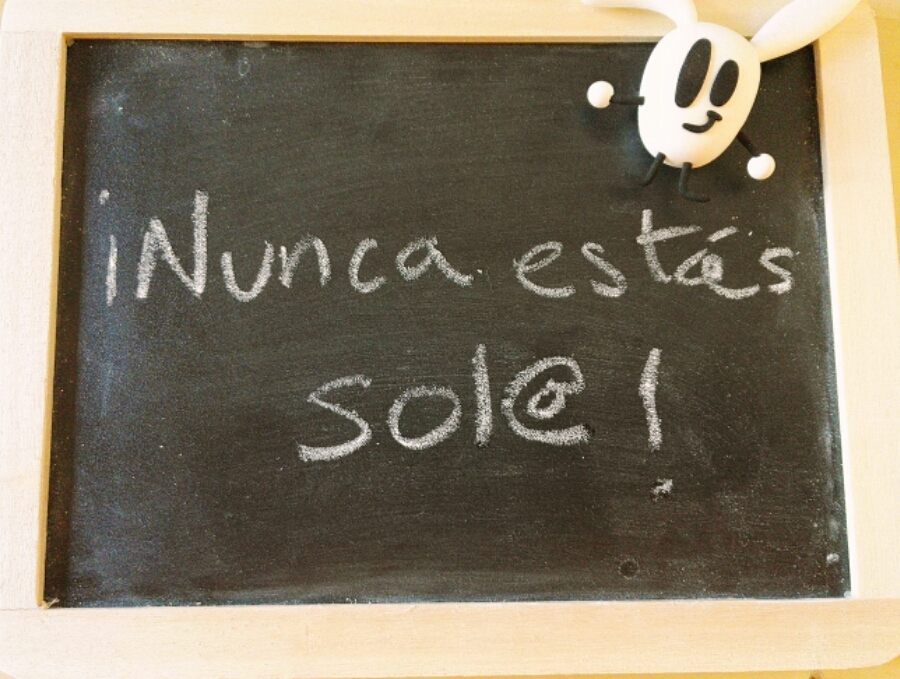 ¡Nunca estás
sol@!